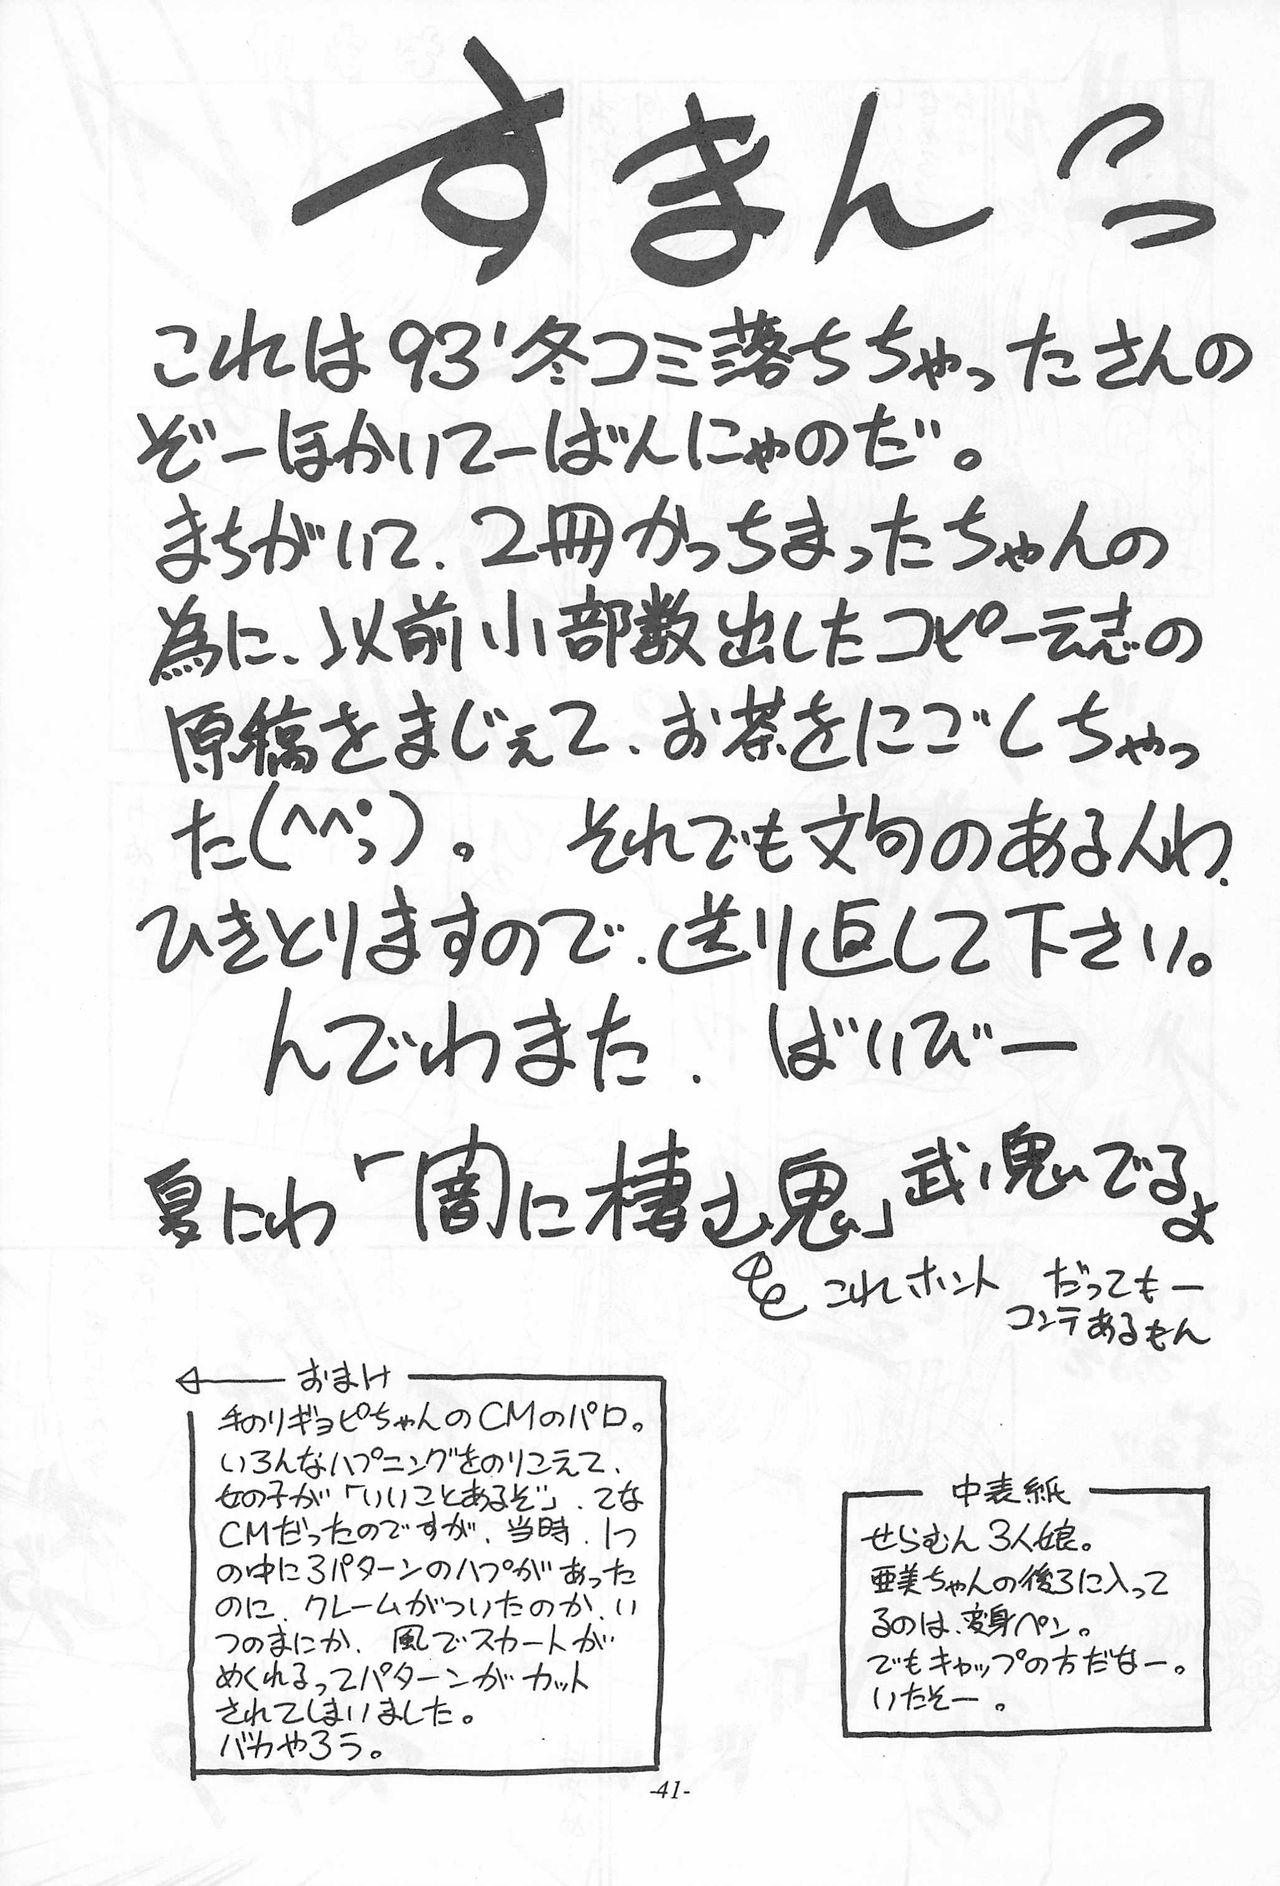 すまんっ
これは93'冬コミ落ちちゃったさんの
ぞーほかいてーばんにゃのだ。
まちがいて、2冊かっちまったちゃんの
為に、以前小部数出したコピー誌の
原稿をまじぇて、お茶をにごしちゃっ
た(^^;)。 それでも文句のある人わ、
ひきとりますので、送り返して下さい。
んでわまた、ばいびー
夏にわ「闇に棲む鬼」武ノ鬼でるよ
これホント だってもー
コンテあるもん
おまけ
手のりギョピちゃんのCMのパロ。
いろんなハプニングをのりこえて、
女の子が「いいことあるぞ」、てな
CMだったのですが、当時、1つ
の中に3パターンのハプがあった
のに、クレームがついたのか、い
つのまにか、風でスカートが
めくれるってパターンがカット
されてしまいました。
バカやろう。
中表紙
せらむん3人娘。
-41-